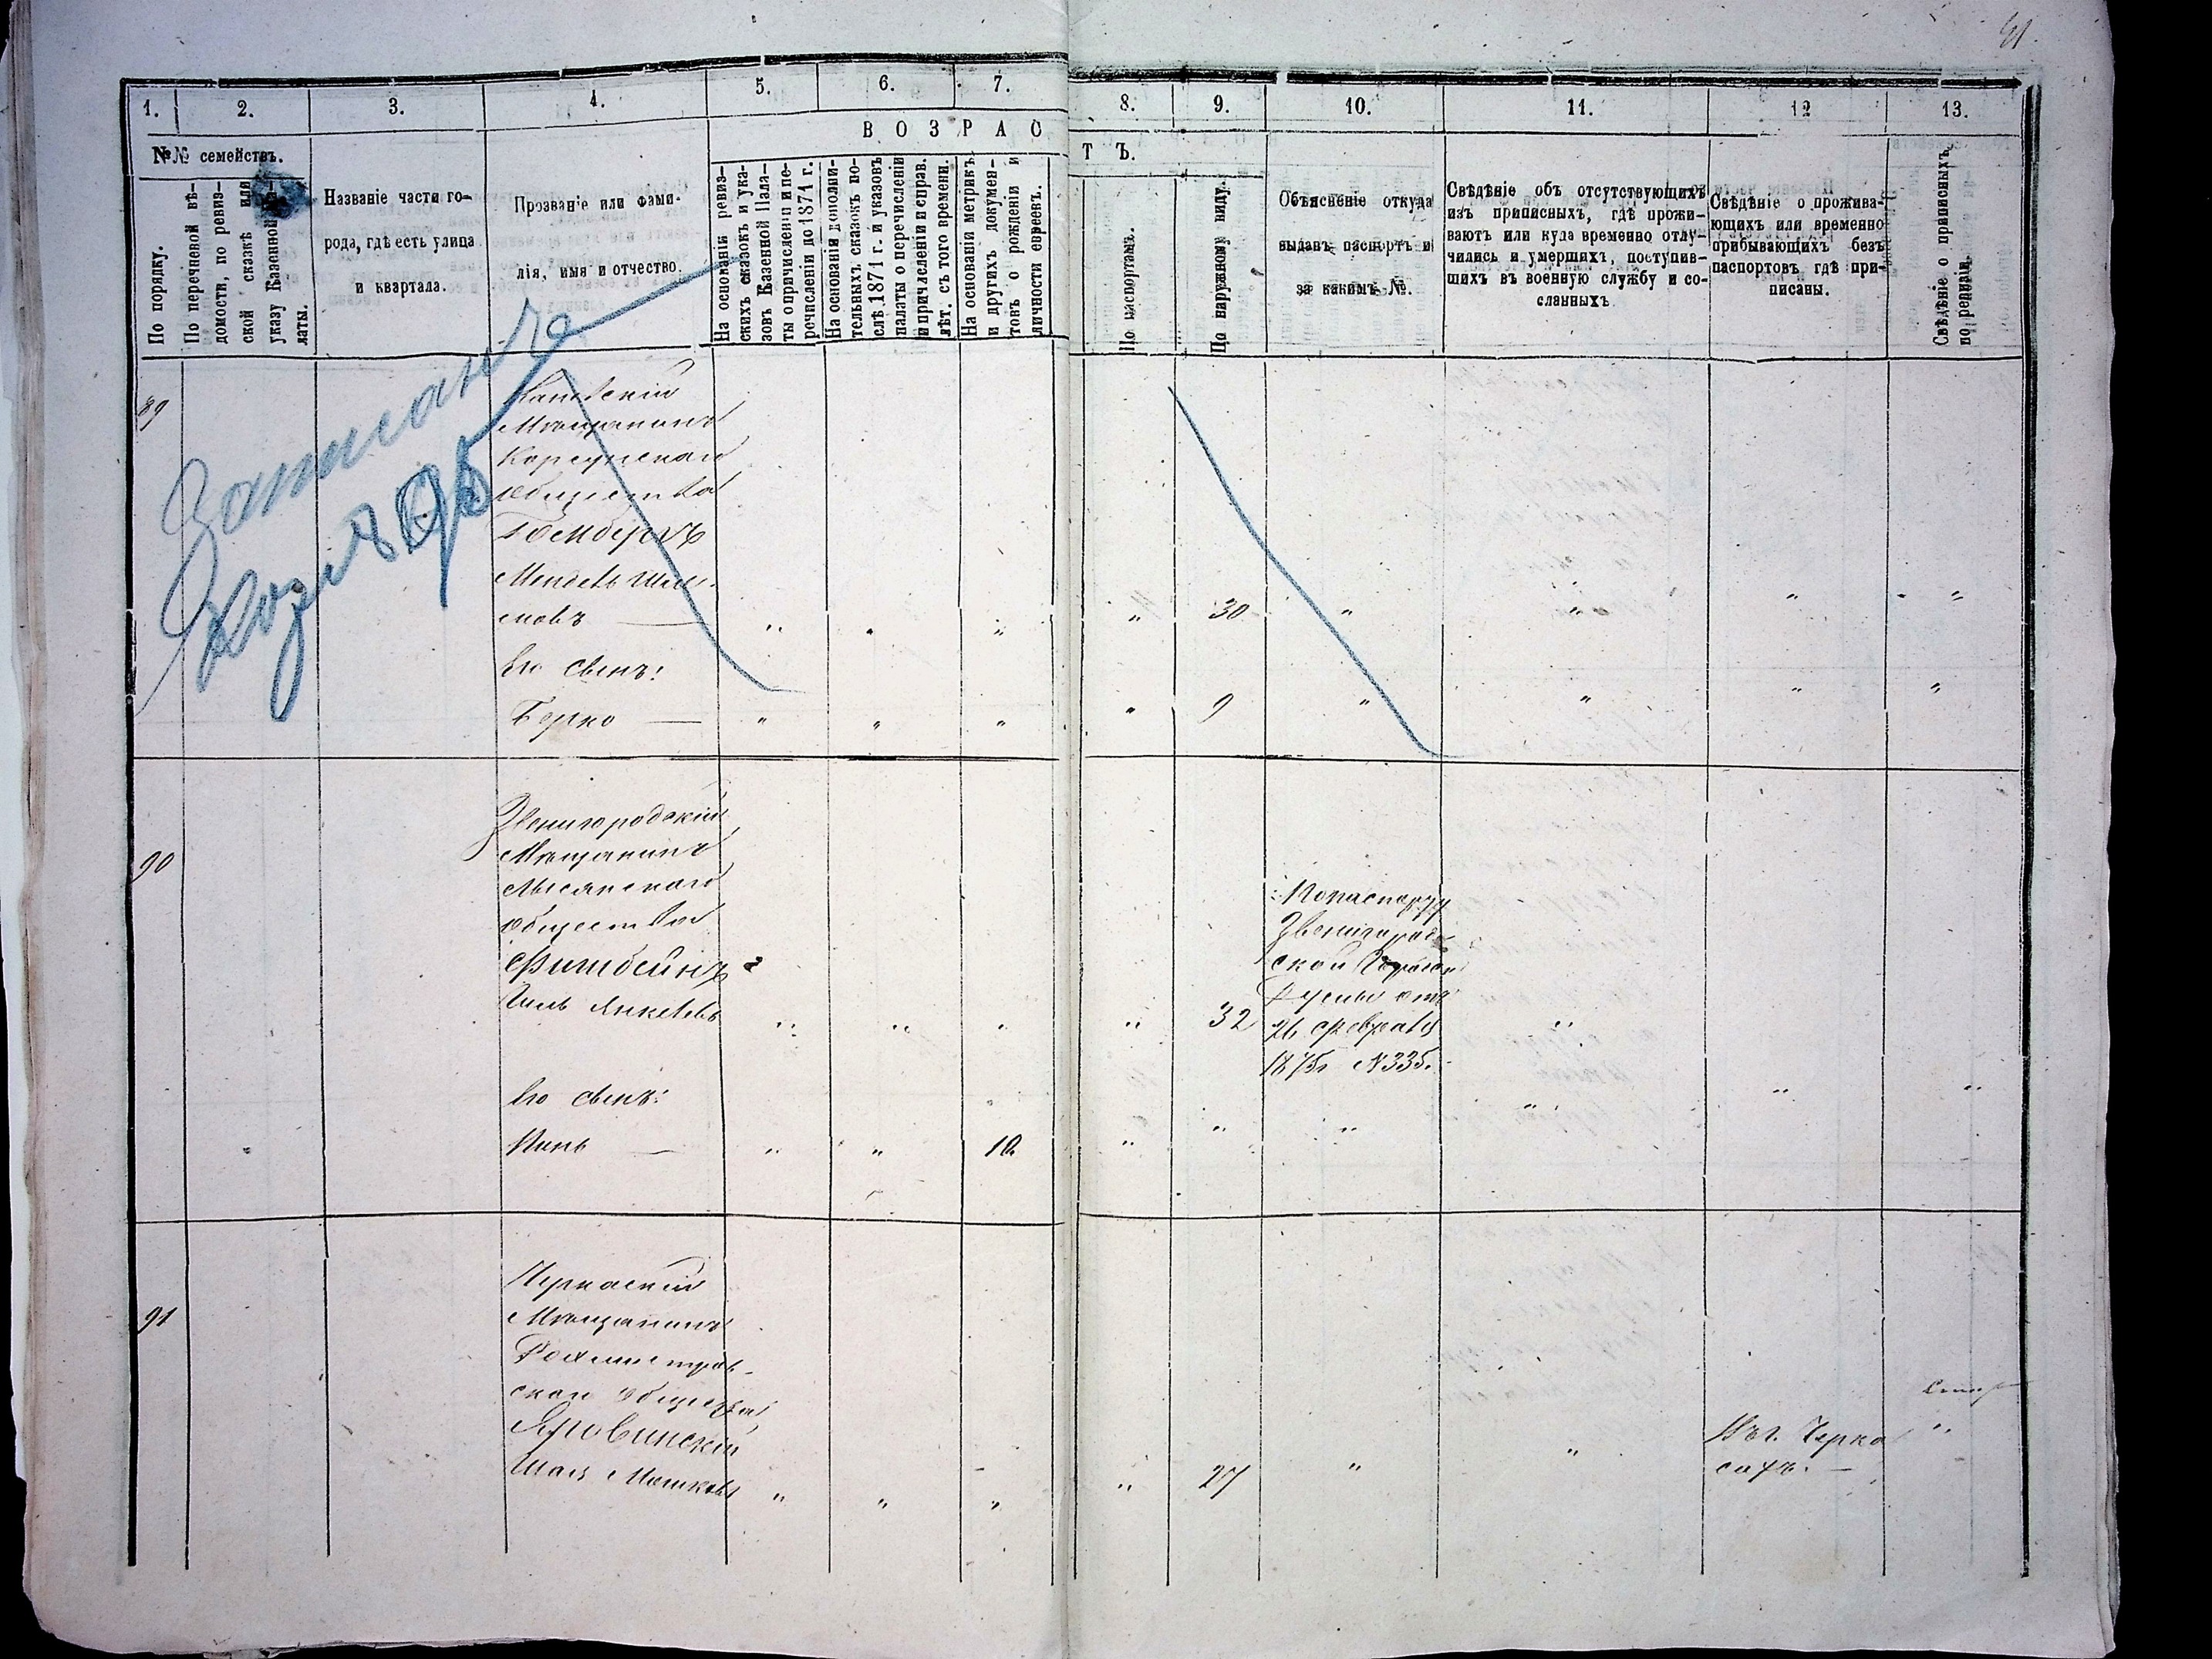 1. 2. 3. 4. 5. 6. 7. 8. 9. 10. 11. 12 13.
ВОЗРАСТЪ.
№№ семействъ.
По порядку.
По перечневой вѣ-
домости, по ревиз-
ской сказкѣ или
указу Казенной Па-
латы.
Названіе части го-
рода, гдѣ есть улица
и квартала.
Прозваніе или фами-
лія, имя и отчество.
На основаніи ревиз-
скихъ сказокъ и ука-
зовъ Казенной Пала-
ты о причислени и пе-
речисленіи до 1871 г.
На основаніи дополни-
тельныхъ сказокъ по-
слѣ 1871 г. и указовъ
палаты о перечисленіи
и причисленіи и справ.
лѣт. съ того времени.
На основаніи метрикъ
и другихъ докумен-
товъ о рожденіи и
личности евреевъ.
По паспортамъ.
По наружному виду.
Объясненіе откуда
выданъ паспортъ и
за какимъ №.
Свѣдѣніе объ отсутствующихъ
изъ приписныхъ, гдѣ прожи-
ваютъ или куда временно отлу-
чились и умершихъ, поступив-
шихъ въ военную службу и со-
сланныхъ
Свѣдѣніе о прожива-
ющихъ или временно
прибывающихъ безъ
паспортовъ гдѣ при-
писаны.
Свѣдѣніе о приписныхъ
по ревизіи.
89
Каневскій
Мѣщанинъ
Корсунскаго
Общества
Гомбергъ
Мендель Шли-
мовъ — " " " " 30 " " " "
Его сынъ:
Берко — " " " " 9 " " " "
90
Звенигородскій
Мѣщанинъ
Лысянскаго
Общества
Фишбейнъ
Янкелевъ " " " " 32 "
По паспорту
Звенигород
ской Городск
Думы отъ
26 Февраля
1875 г №335.
Его сынъ:
" " 10 " " " " " "
91
Черкаскій
Мѣщанинъ
ского Общества
Яновинскій
Мошковъ " " " " 27 " " "
Въ г. Черка
сахъ. —